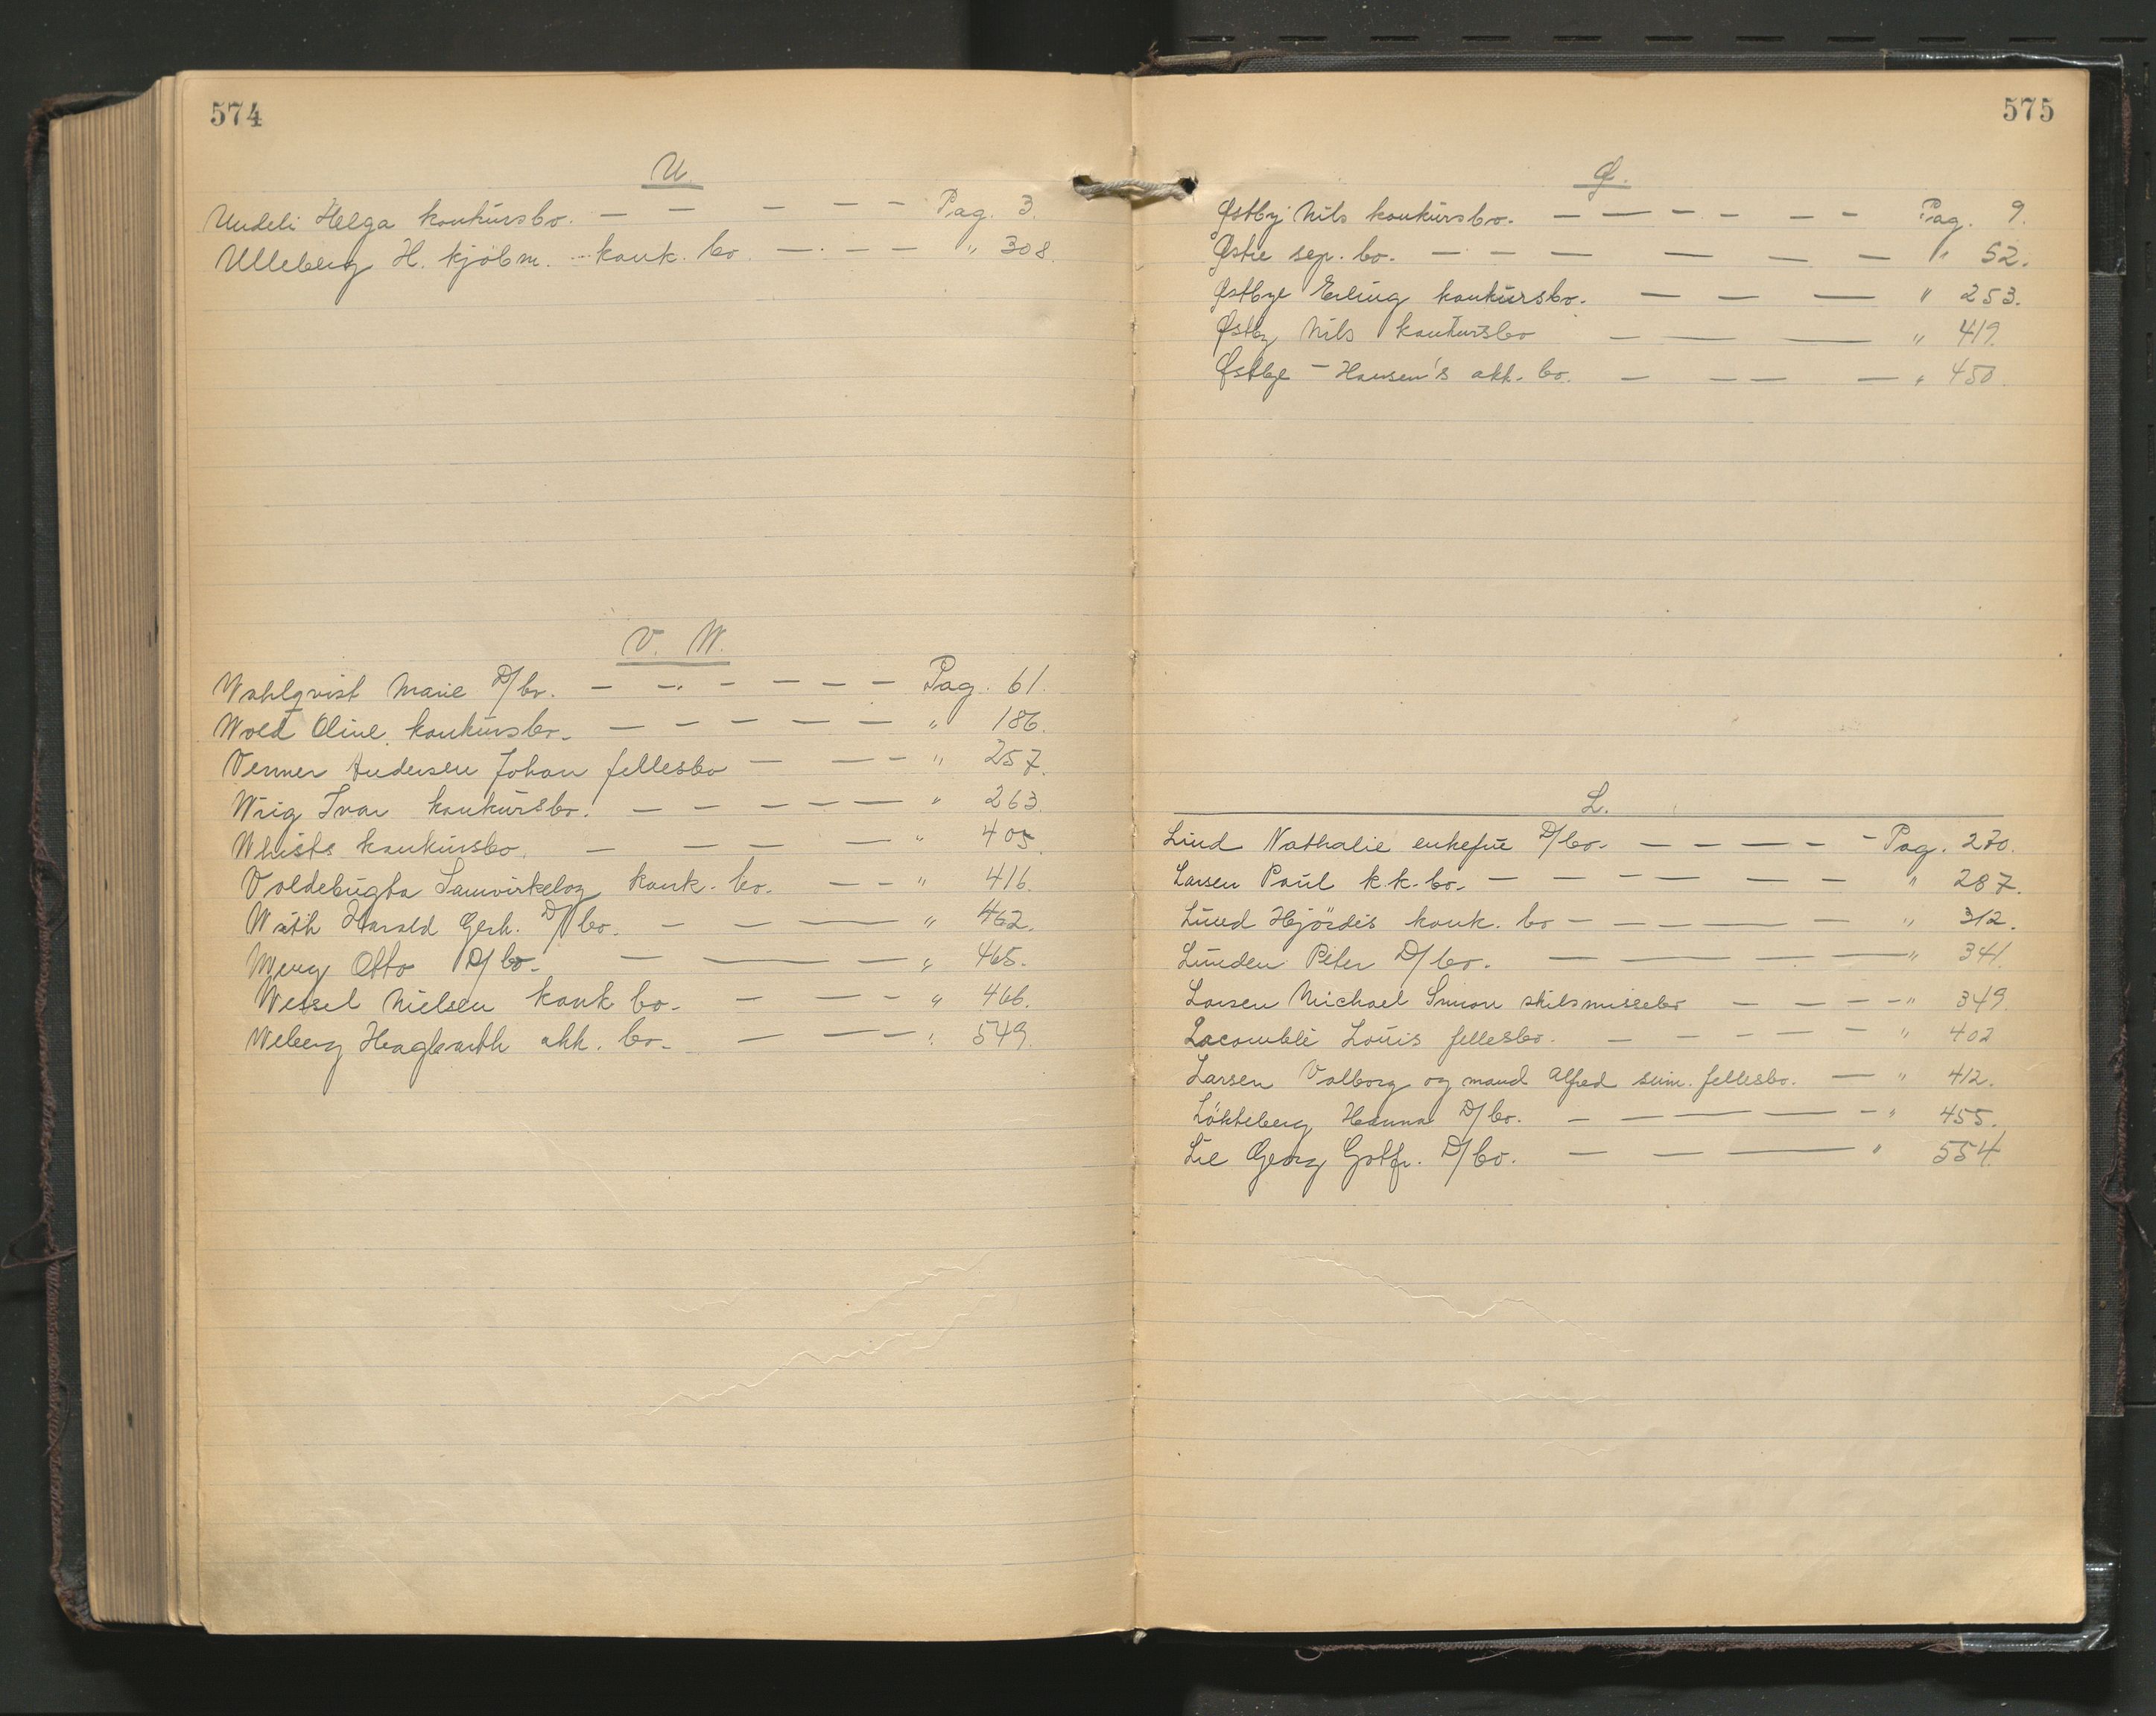 574
U.
Undeli Helga konkursbo. — — — — — Pag. 3.
Ulleberg H. kjöbm. konk. bo. — — — " 308.
V. W.
Wahlqvist Marie D/bo. — — — — — — Pag. 61.
Wold Oline konkursbo. — — — — — — " 186.
Venner Andersen Johan fellesbo — — — " 257.
Wiig Ivar konkursbo. — — — — — " 263.
Whists konkursbo. — — — — " 405.
Voldebugta Samvirkelag konk. bo. — — " 416.
Wäth Harald Gerh. D/bo. — — — " 462.
Meng Otto D/bo. — — — " 465.
Wessel Nielsen konk bo. — — — " 466.
Weberg Hagbarth akk. bo. — — — " 549.
575
Ø.
Østby Nils konkursbo. — — — — — — Pag. 9.
Østre sep. bo. — — — — — — " 52.
Østbye Erling konkursbo. — — — " 253.
Østby Nils konkursbo — — — " 419.
Østbye - Hansen's akk. bo. — — — — " 450.
L.
Lind Nathalie enkefru D/bo. — — — — — Pag. 270.
Larsen Paul k.k. bo. — — — — — — — " 287.
Lund Hjördis konk. bo — — — — — " 312.
Lunden Peter D/bo. — — — — " 341.
Larsen Michael Simon skilsmissebo — — — — " 349.
Lacomblé Louis fellesbo. — — — — — " 402
Larsen Valborg og mand Alfred seim. fellesbo. — " 412.
Lökkeberg Hanna D/bo. — — — — — " 455.
Lie Georg Gotfr. D/bo. — — — " 554.